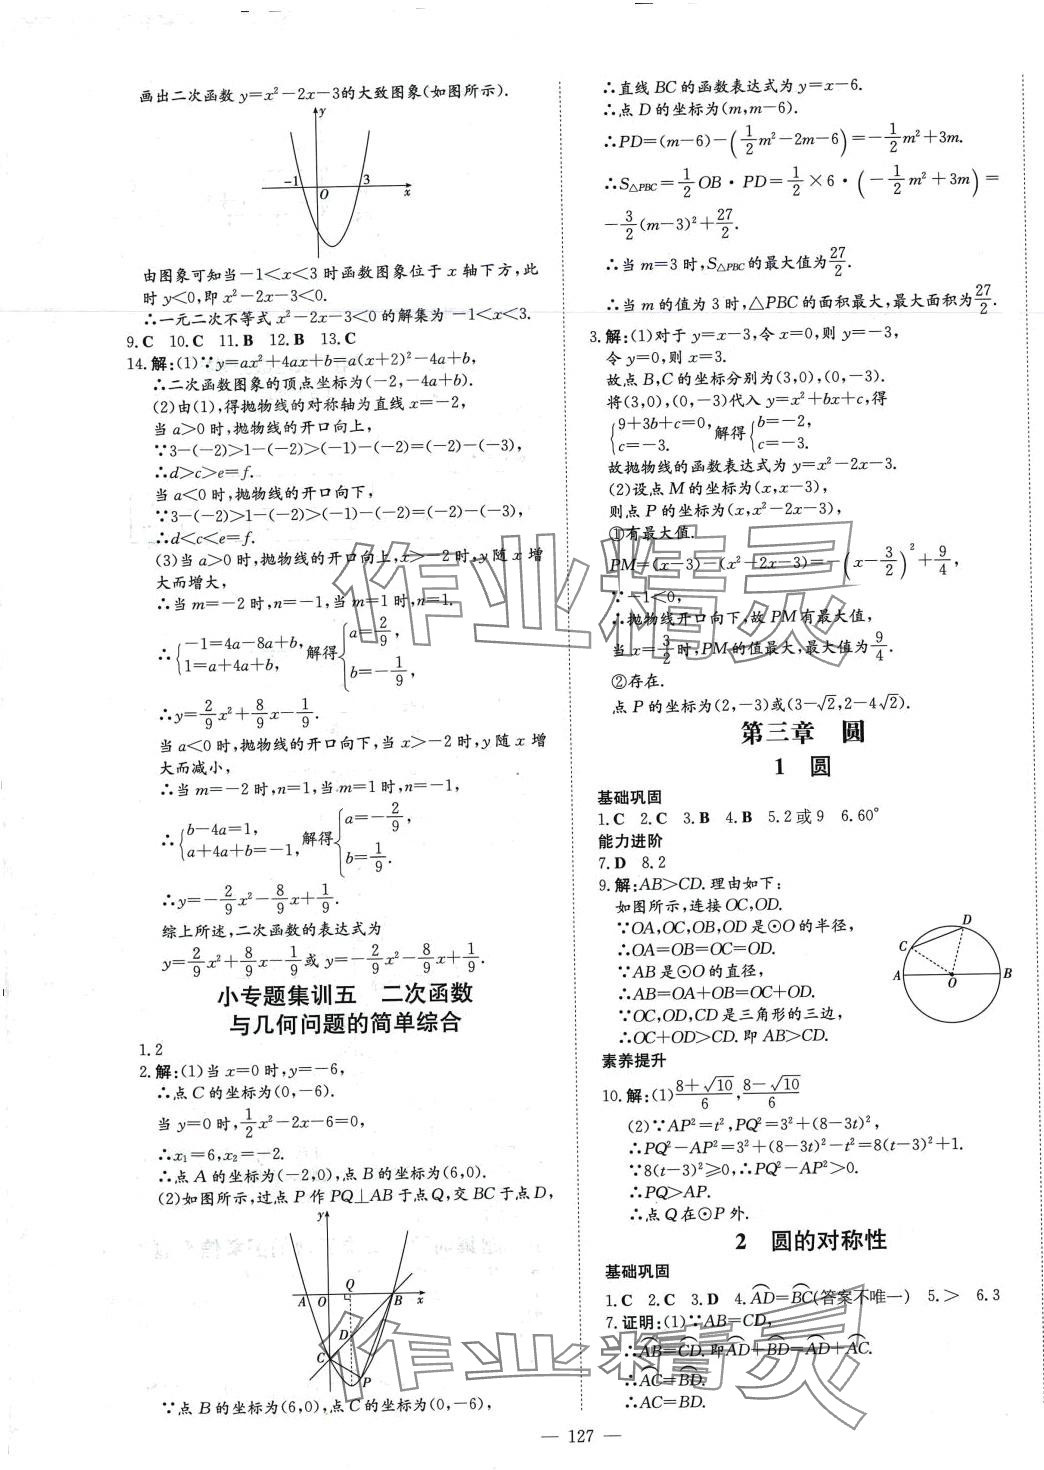 画出二次函数 y=x²-2x-3的大致图象(如图所示).
y
-1
3
O
x
由图象可知当-1<x<3 时函数图象位于 x 轴下方,此
时 y<0,即 x²-2x-3<0.
∴一元二次不等式 x²-2x-3<0 的解集为 -1<x<3.
9.C 10.C 11.B 12.B 13.C
14.解:(1)∵y=ax²+4ax+b=a(x+2)²-4a+b,
∴二次函数图象的顶点坐标为(-2,-4a+b).
(2)由(1),得抛物线的对称轴为直线 x=-2,
当 a>0 时,抛物线的开口向上,
∵3-(-2)>1-(-2)>(-1)-(-2)=(-2)-(-3),
∴d>c>e=f.
当 a<0 时,抛物线的开口向下,
∵3-(-2)>1-(-2)>(-1)-(-2)=(-2)-(-3),
∴d<c<e=f.
(3)当 a>0 时,抛物线的开口向上,x>-2 时,y 随 x 增
大而增大,
∴当 m=-2 时,n=-1,当 m=1 时,n=1.
∴{-1=4a-8a+b, 1=a+4a+b, 解得{a=2/9, b=-1/9,
∴y=2/9x²+8/9x-1/9.
当 a<0 时,抛物线的开口向下,当 x>-2 时,y 随 x 增
大而减小,
∴当 m=-2 时,n=1,当 m=1 时,n=-1,
∴{b-4a=1, a+4a+b=-1, 解得{a=-2/9, b=1/9.
∴y=-2/9x²-8/9x+1/9.
综上所述,二次函数的表达式为
y=2/9x²+8/9x-1/9或 y=-2/9x²-8/9x+1/9.
小专题集训五 二次函数
与几何问题的简单综合
1.2
2.解:(1)当 x=0 时,y=-6,
∴点 C 的坐标为(0,-6).
当 y=0 时,1/2x²-2x-6=0,
∴x₁=6,x₂=-2.
∴点 A 的坐标为(-2,0),点 B 的坐标为(6,0).
(2)如图所示,过点 P 作 PQ⊥AB 于点 Q,交 BC 于点 D,
y
Q
A O B x
D
C
P
∵点 B 的坐标为(6,0),点 C 的坐标为(0,-6),
∴直线 BC 的函数表达式为 y=x-6.
∴点 D 的坐标为(m,m-6).
∴PD=(m-6)-(1/2m²-2m-6)=-1/2m²+3m.
∴S△PBC=1/2OB·PD=1/2×6·(-1/2m²+3m)=
-3/2(m-3)²+27/2.
∴当 m=3 时,S△PBC的最大值为27/2.
∴当 m 的值为 3 时,△PBC 的面积最大,最大面积为27/2.
3.解:(1)对于 y=x-3,令 x=0,则 y=-3,
令 y=0,则 x=3.
故点 B,C 的坐标分别为(3,0),(0,-3).
将(3,0),(0,-3)代入 y=x²+bx+c,得
{9+3b+c=0, c=-3. 解得{b=-2, c=-3.
故抛物线的函数表达式为 y=x²-2x-3.
(2)设点 M 的坐标为(x,x-3),
则点 P 的坐标为(x,x²-2x-3),
①有最大值.
PM=(x-3)-(x²-2x-3)=-(x-3/2)²+9/4,
∵-1<0,
∴抛物线开口向下,故 PM 有最大值,
当 x=3/2时,PM的值最大,最大值为9/4.
②存在.
点 P 的坐标为(2,-3)或(3-√2,2-4√2).
第三章 圆
1 圆
基础巩固
1.C 2.C 3.B 4.B 5.2 或 9 6.60°
能力进阶
7.D 8.2
9.解:AB>CD.理由如下:
如图所示,连接 OC,OD.
∵OA,OC,OB,OD 是⊙O 的半径,
∴OA=OB=OC=OD.
∵AB 是⊙O 的直径,
∴AB=OA+OB=OC+OD.
∵OC,OD,CD 是三角形的三边,
∴OC+OD>CD.即 AB>CD.
D
C
A O B
素养提升
10.解:(1)(8+√10)/6,(8-√10)/6
(2)∵AP²=t²,PQ²=3²+(8-3t)²,
∴PQ²-AP²=3²+(8-3t)²-t²=8(t-3)²+1.
∵8(t-3)²≥0,∴PQ²-AP²>0.
∴PQ>AP.
∴点 Q 在⊙P 外.
2 圆的对称性
基础巩固
1.C 2.C 3.D 4.A͡D=B͡C(答案不唯一) 5.> 6.3
7.证明:(1)∵AB=CD,
∴A͡B=C͡D.即A͡D+B͡D=A͡D+A͡C.
∴A͡C=B͡D.
∴AC=BD.
— 127 —
作业精灵
作业精灵